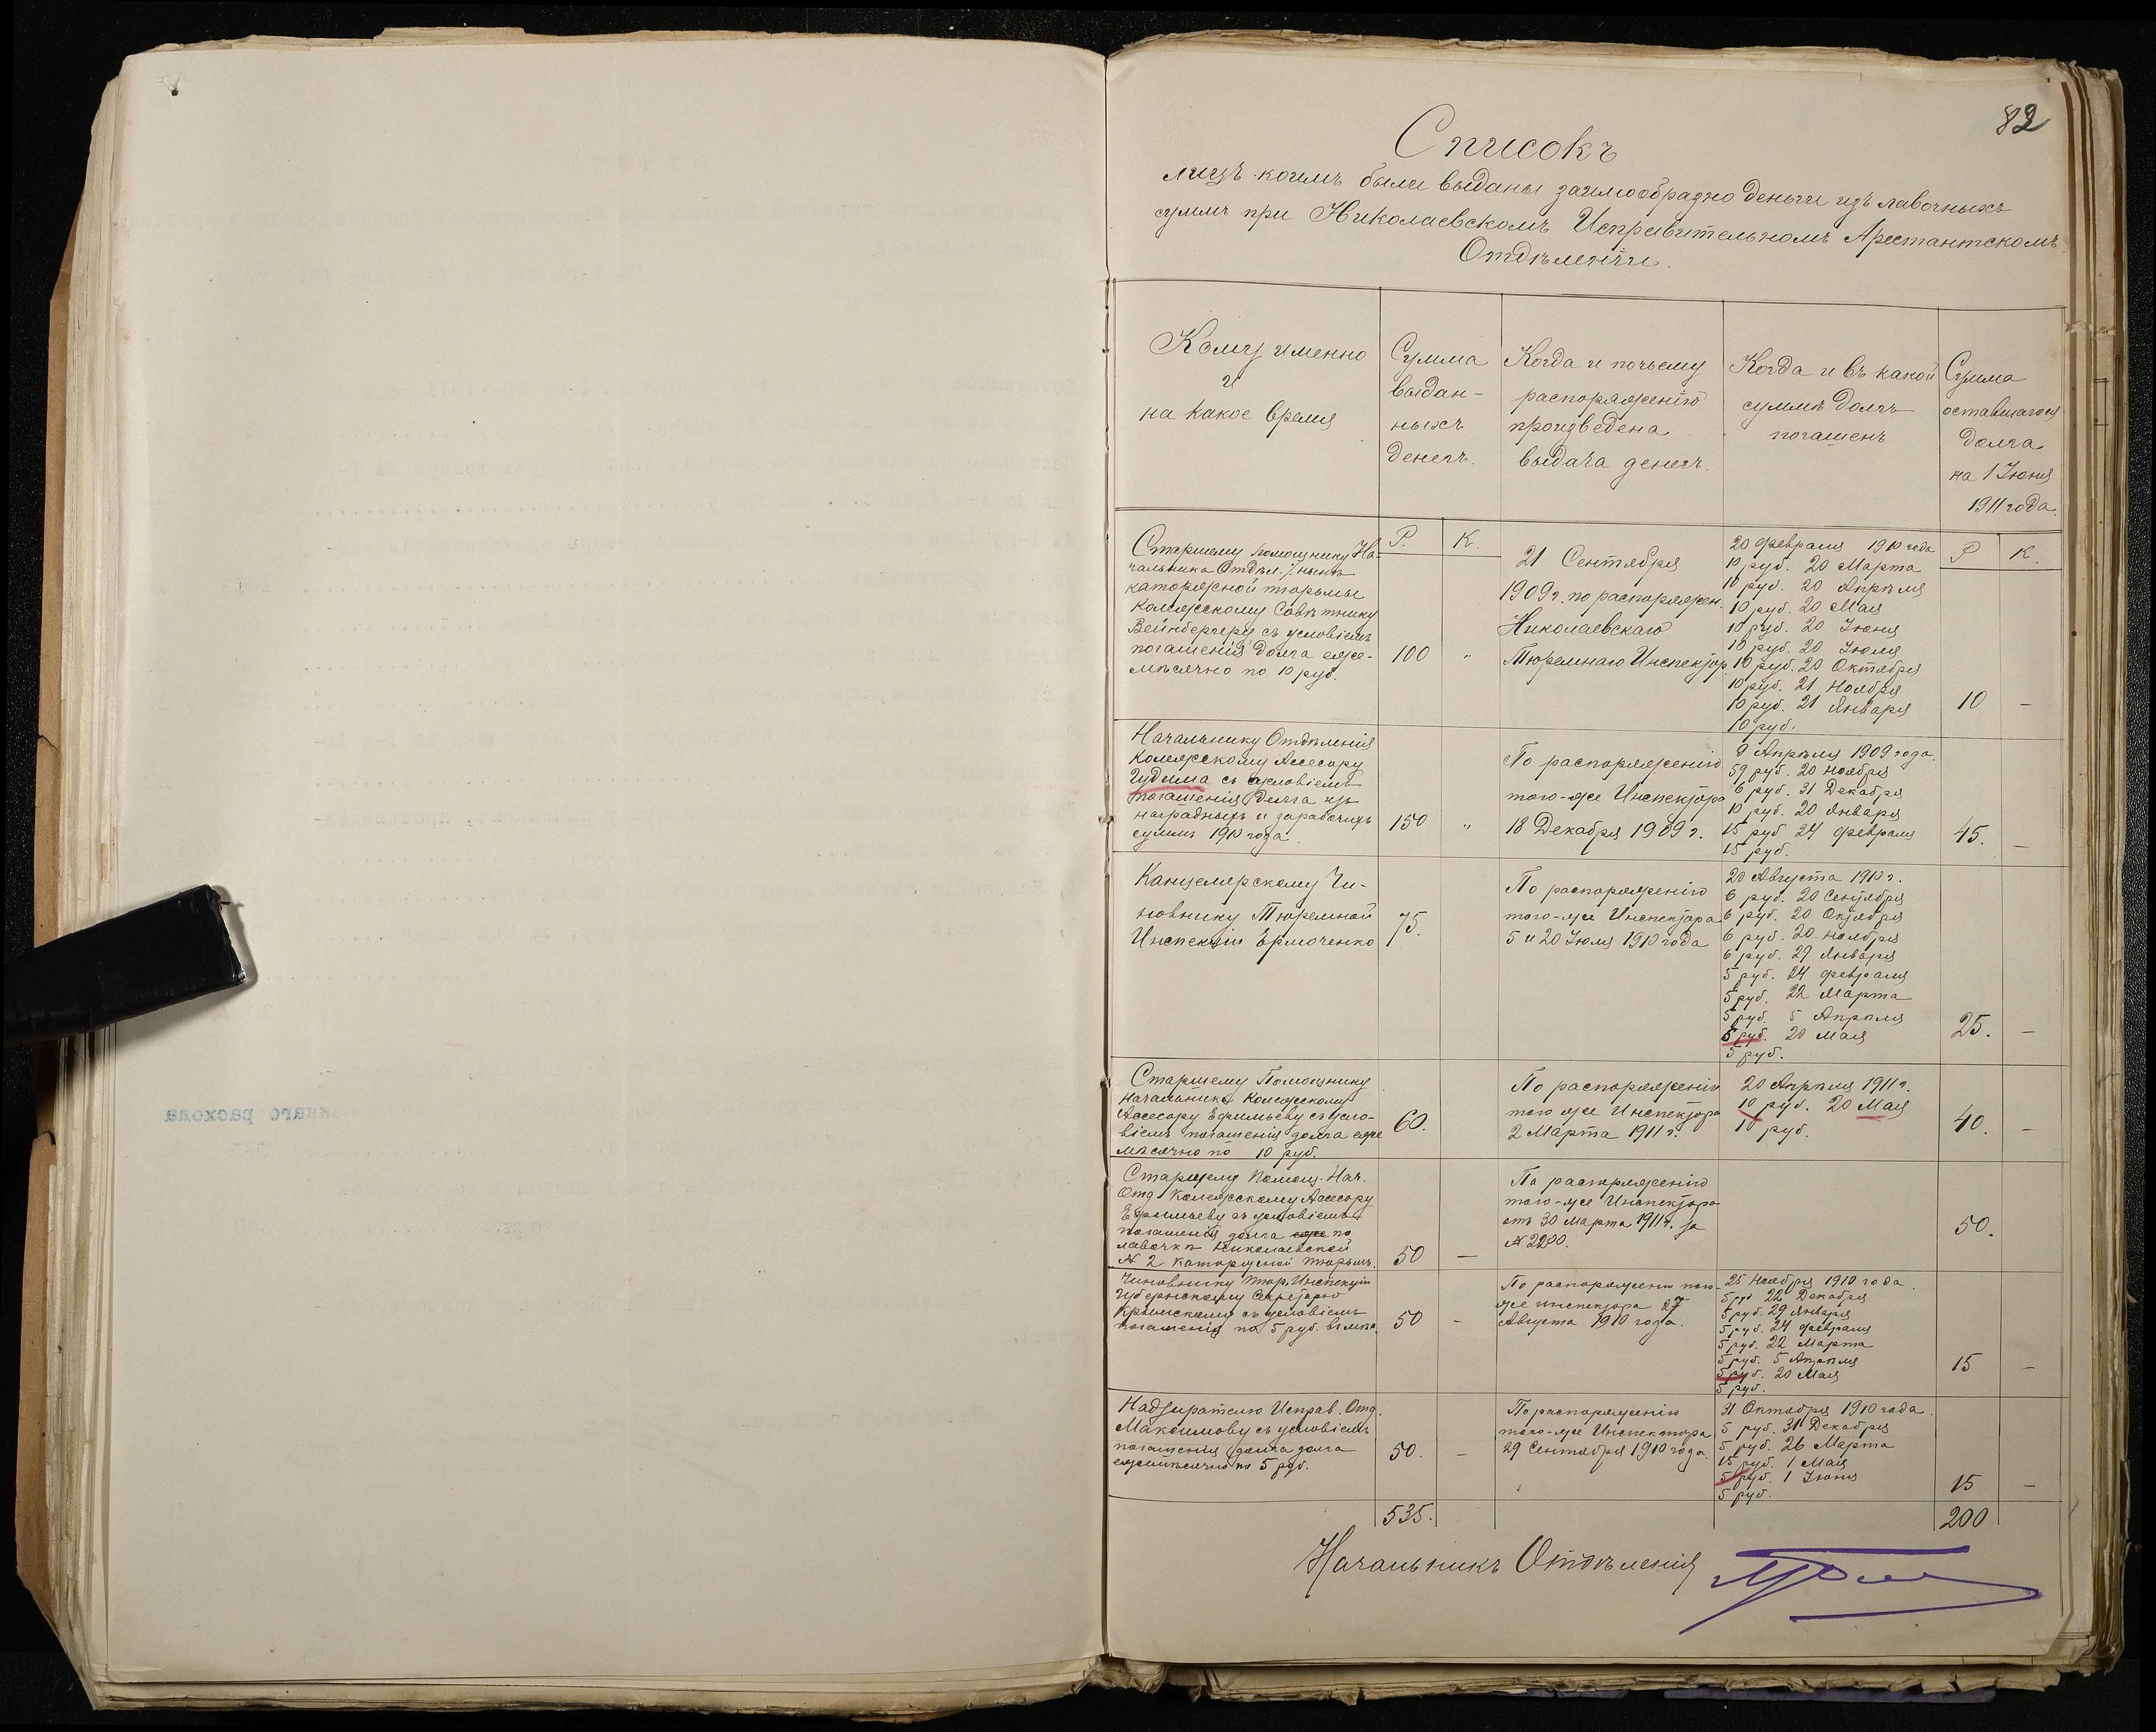 82
Списокъ
лицъ коимъ были выданы заимообразно деньги изъ лавочныхъ
суммъ при Николаевскомъ Исправительномъ Арестантскомъ
Отдѣленіи.
Кому именно
и
на какое время
Сумма
выдан-
ныхъ
денегъ.
Когда и почьему
распоряженію
произведена
выдача денегъ.
Когда и въ какой
суммѣ долгъ
погашенъ
Сумма
оставшагося
долга
на 1 Іюня
1911 года.
Р. К.
Р К.
Старшему помощнику На-
чальника Отдѣл. нынѣ
каторжной тюрьмы
Коллежскому Совѣтнику
Вейнбергеру, съ условіемъ
погашенія долга еже-
мѣсячно по 10 руб.
100 "
21 Сентября
1909 г. по распоряжен.
Николаевскаго
Тюремнаго Инспектор
20 февраля 1910 года
10 руб. 20 Марта
10 руб. 20 Апрѣля
10 руб. 20 Мая
10 руб. 20 Іюня
10 руб. 20 Іюля
10 руб. 20 Октября
10 руб. 21 Ноября
10 руб. 21 Января
10 руб.
10 –
Начальнику Отдѣленія
Коллежскому Ассесору
Гудима съ условіемъ
погашенія долга изъ
наградныхъ и заработныхъ
суммъ 1910 года.
150 "
По распоряженію
того-же Инспектора
18 Декабря 1909 г.
9 Апрѣля 1909 года.
59 руб. 20 Ноября
6 руб. 31 Декабря
10 руб. 20 Января
15 руб. 24 февраля
15 руб.
45. –
Канцелярскому Чи-
новнику Тюремной
Инспекціи Ермоченко
75.
По распоряженію
того-же Инспектора
5 и 20 Іюля 1910 года
20 Августа 1910 г.
6 руб. 20 Сентября
6 руб. 20 Октября
6 руб. 20 Ноября
6 руб. 29 Января
5 руб. 24 февраля
5 руб. 22 Марта
5 руб. 5 Апрѣля
5 руб. 20 Мая
5 руб.
25. –
Старшему Помощнику
Начальника Коллежскому
Ассесору Ефимьеву съ усло-
віемъ погашенія долга еже
мѣсячно по 10 руб.
60.
По распоряженію
того же Инспектора
2 Марта 1911 г.
20 Апрѣля 1911 г.
10 руб. 20 Мая
10 руб.
40. –
Старшему Помощ. Нач.
Отд. Коллежскому Ассесору
Ефимьеву съ условіемъ
погашенія долга еже по
лавочкѣ Николаевской
№ 2 каторжной тюрьмѣ.
50 –
По распоряженію
того-же Инспектора
отъ 30 Марта 1911 г. за
№ 2280.
50.
Чиновнику Тюр. Инспекціи
Губернскому Секретарю
Крымскому съ условіемъ
погашенія по 5 руб. въ мѣс.
50 –
По распоряженію того-
же инспектора 27
Августа 1910 года.
25 Ноября 1910 года
5 руб 22 Декабря
5 руб. 29 Января
5 руб. 24 февраля
5 руб. 22 Марта
5 руб. 5 Апрѣля
5 руб. 20 Мая
5 руб.
15 –
Надзирателю Исправ. Отд.
Максимову съ условіемъ
погашенія долга долга
ежемѣсячно по 5 руб.
50. –
По распоряженію
того-же Инспектора
29 Сентября 1910 года.
31 Октября 1910 года.
5 руб. 31 Декабря
5 руб. 26 Марта
15 руб. 1 Мая
5 руб. 1 Іюня
5 руб.
15 –
535.
200
Начальникъ Отдѣленія